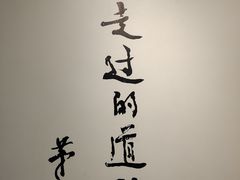 走过的道
茅